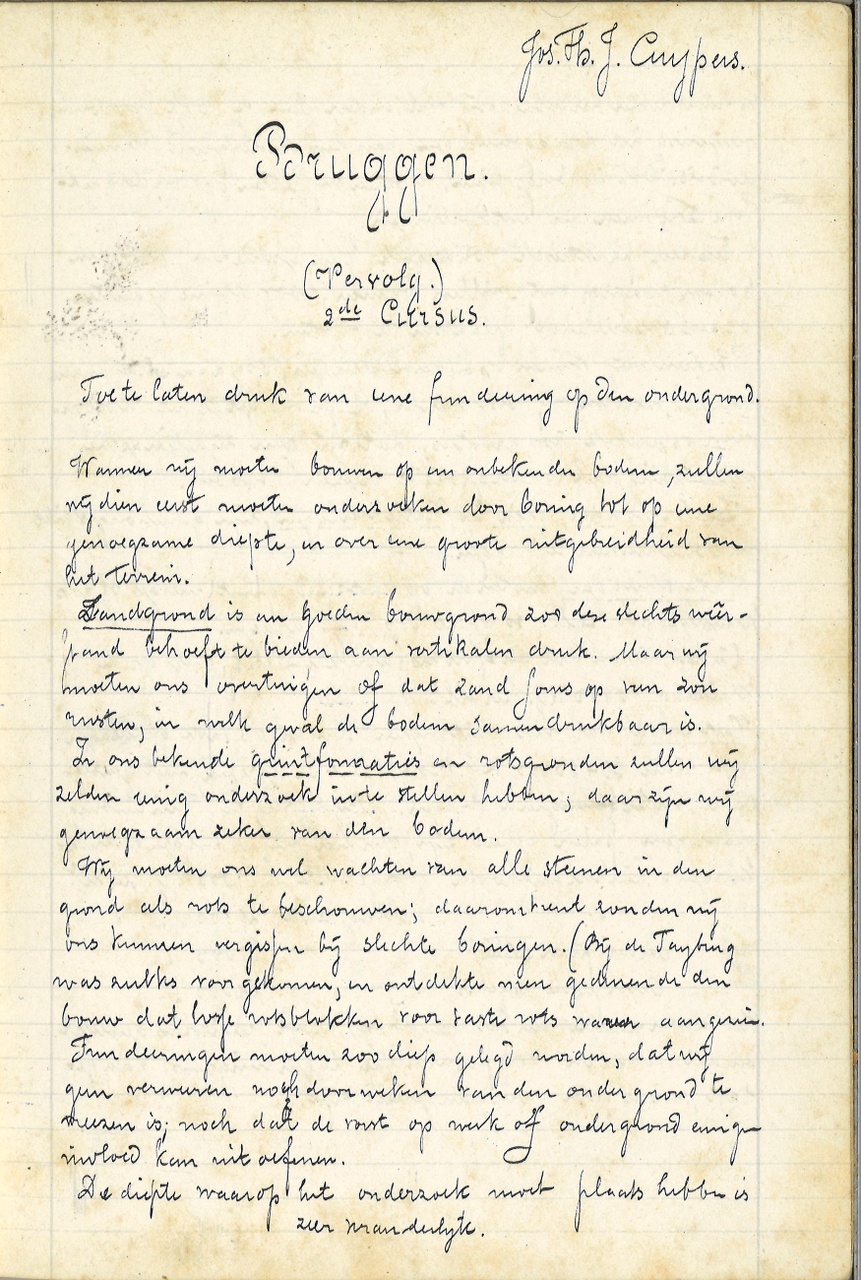 Jos. Th. J. Cuypers.
Bruggen.
(Vervolg.)
2de Cursus.
Toe te laten druk van eene fundeering op den ondergrond.
Wanneer wij moeten bouwen op een onbekenden bodem, zullen
wij dien eerst moeten onderzoeken door boring tot op eene
genoegzame diepte, en over eene groote uitgebreidheid van
het terrein.
Zandgrond is een goeden bouwgrond zoo deze slechts weêr-
stand behoeft te bieden aan vertikalen druk. Maar wij
moeten ons overtuigen of dat zand soms op veen zou
rusten, in welk geval de bodem samendrukbaar is.
In ons bekende grintformaties en rotsgronden zullen wij
zelden eenig onderzoek in te stellen hebben; daar zijn wij
genoegzaam zeker van den bodem.
Wij moeten ons wel wachten van alle steenen in den
grond als rots te beschouwen; daaromtrent zouden wij
ons kunnen vergissen bij slechte boringen. (Bij de Taybrug
was zulks voorgekomen, en ontdekte men gedurende den
bouw dat losse rotsblokken voor vaste rots waren aangezien.
Fundeeringen moeten zoo diep gelegd worden, dat wij
geen verweeren noch doorweken van den ondergrond te
vreezen is; noch dat de vorst op werk of ondergrond eenigen
invloed kan uitoefenen.
De diepte waarop het onderzoek moet plaats hebben is
zeer veranderlijk.